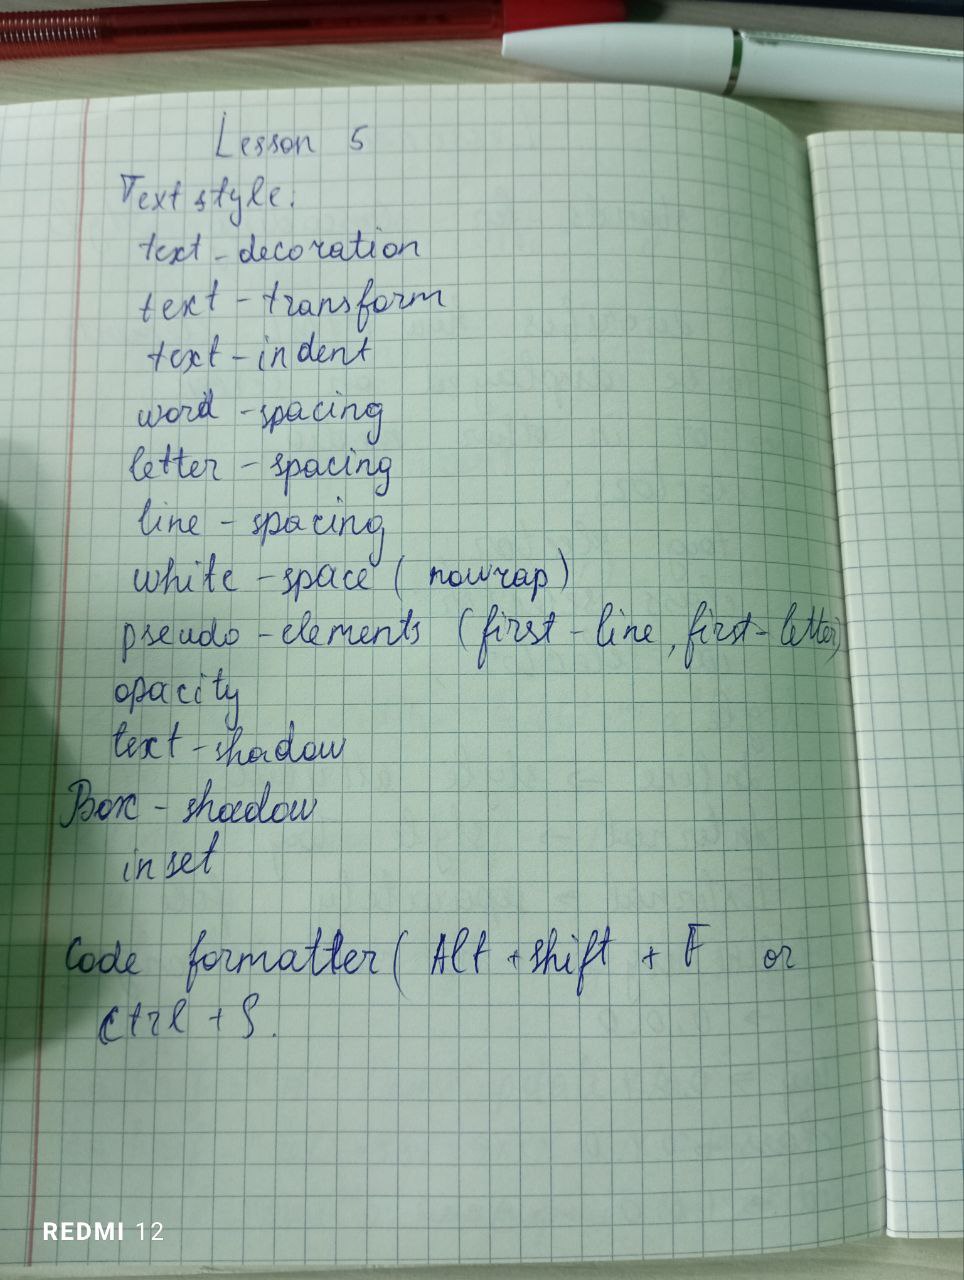 Lesson 5
Text style:
text-decoration
text-transform
text-indent
word-spacing
letter-spacing
line-spacing
white-space (nowrap)
pseudo-elements (first-line, first-letter)
opacity
text-shadow
Box-shadow
inset
Code formatter (Alt + shift + F or
Ctrl + S.
REDMI 12